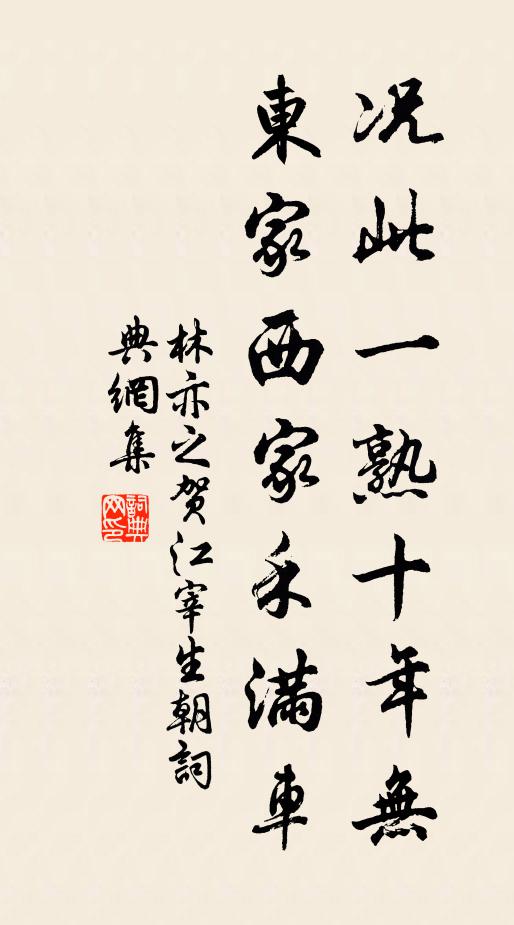 况此一熟十年無
東家西家禾滿車
林亦之賀江宰生朝詞
典網集
詞典
网印